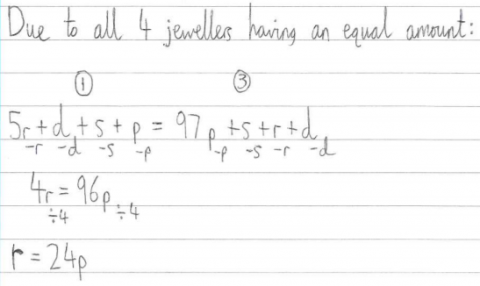 Due to all 4 jewellers having an equal amount:
① ③
5r + d + s + p = 97p + s + r + d
-r -d -s -p -p -s -r -d
4r = 96p
÷4 ÷4
r = 24p